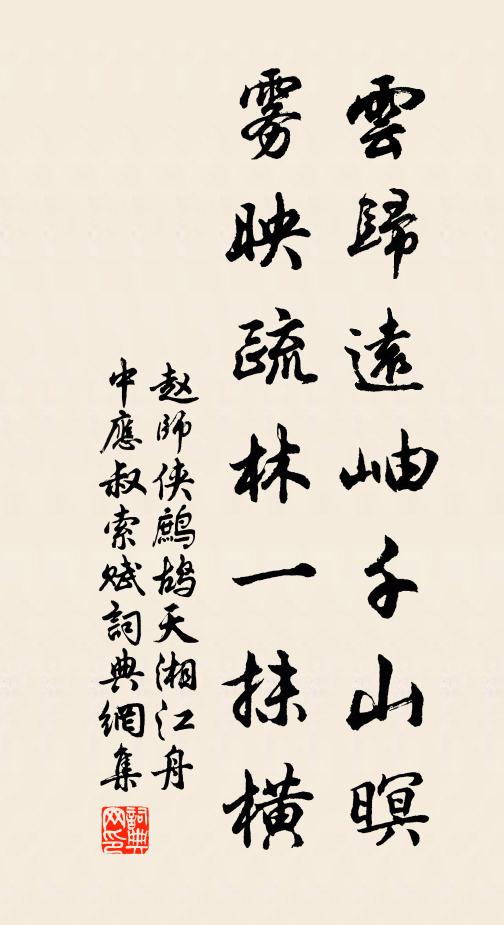 雲歸遠岫千山暝
雾映疏林一抹橫
赵師侠鷓鴣天湘江舟
中應叔索賦詞典網集
詞典
网印